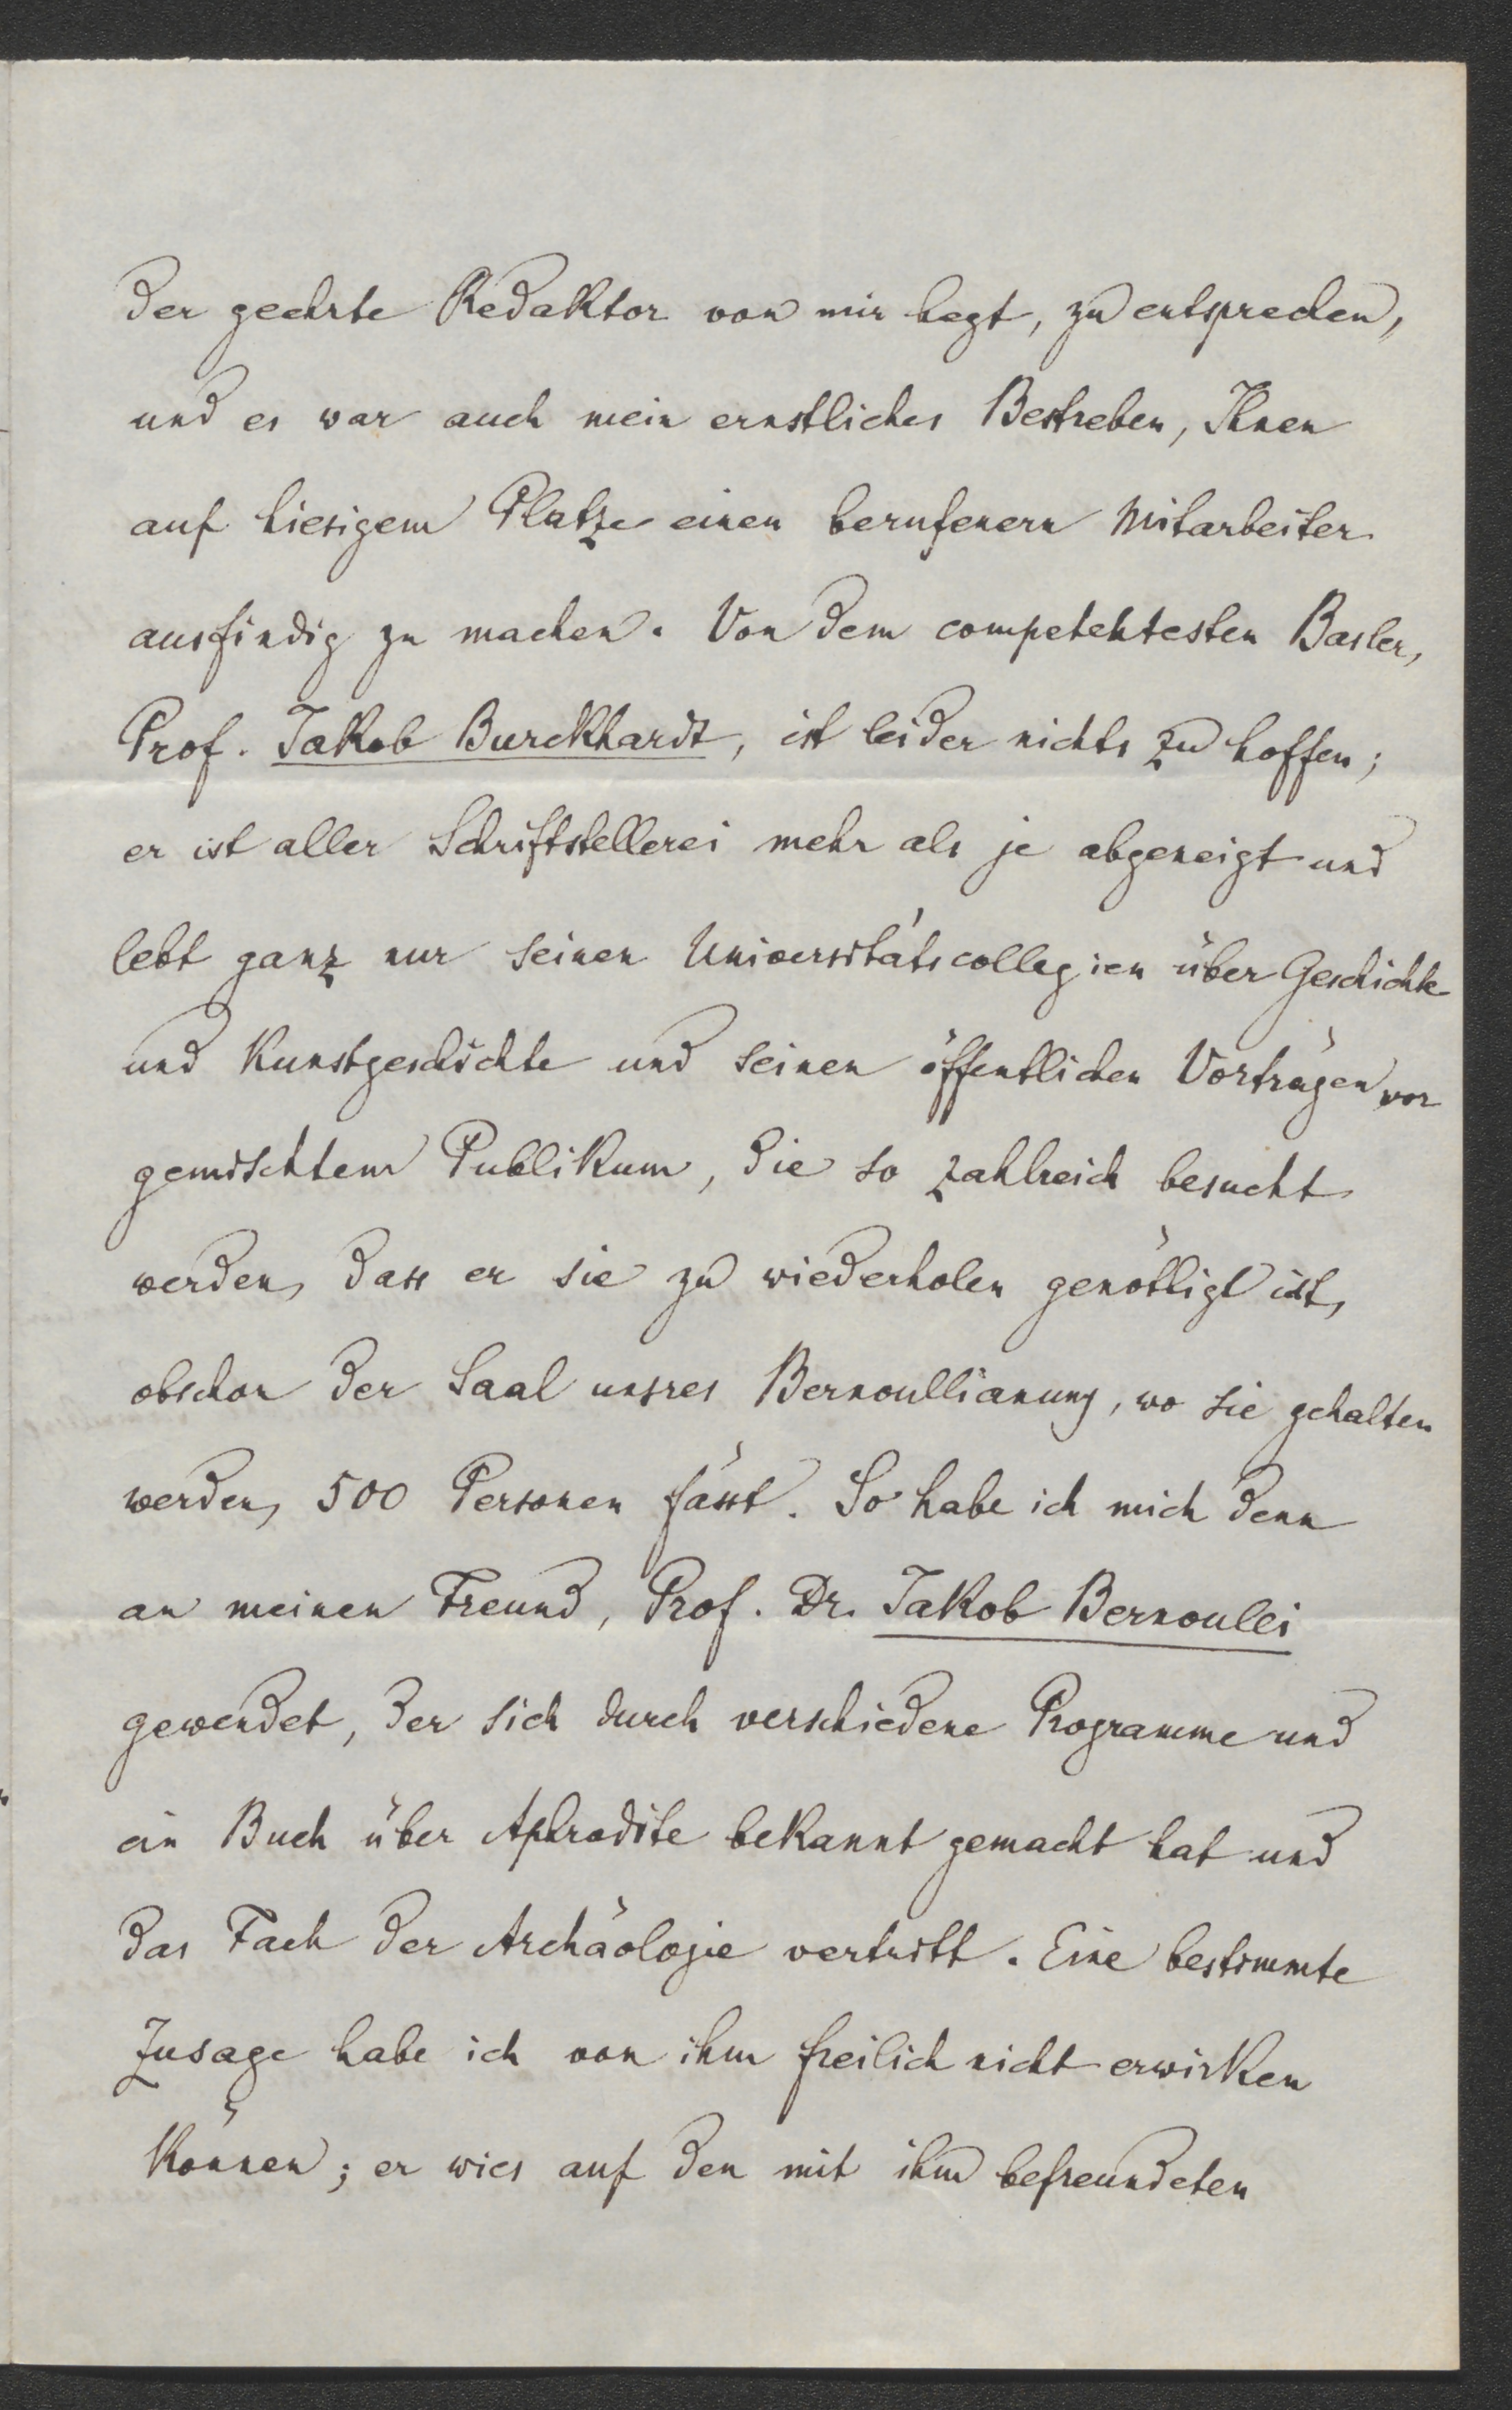 der geehrte Redaktor von mir hegt, zu entsprechen,
und es war auch mein ernstliches Bestreben, Ihnen
auf hiesigem Platze einen berufenern Mitarbeiter
ausfindig zu machen. Von dem competentesten Basler,
Prof. Jakob Burckhardt, ist leider nichts zu hoffen;
er ist aller Schriftstellerei mehr als je abgeneigt und
lebt ganz nur seinen Universitätscollegien über Geschichte
und Kunstgeschichte und seinen öffentlichen Vorträgen vor
gemischtem Publikum, die so zahlreich besucht
werden, dass er sie zu wiederholen genöthigt ist,
obschon der Saal unsres Bernoullianums, wo sie gehalten
werden, 500 Personen fässt. So habe ich mich denn
an meinen Freund, Prof. Dr. Jakob Bernoulli
gewendet, der sich durch verschiedene Programme und
ein Buch über Aphrodite bekannt gemacht hat und
das Fach der Archäologie vertritt. Eine bestimmte
Zusage habe ich von ihm freilich nicht erwirken
können; er wies auf den mit ihm befreundeten